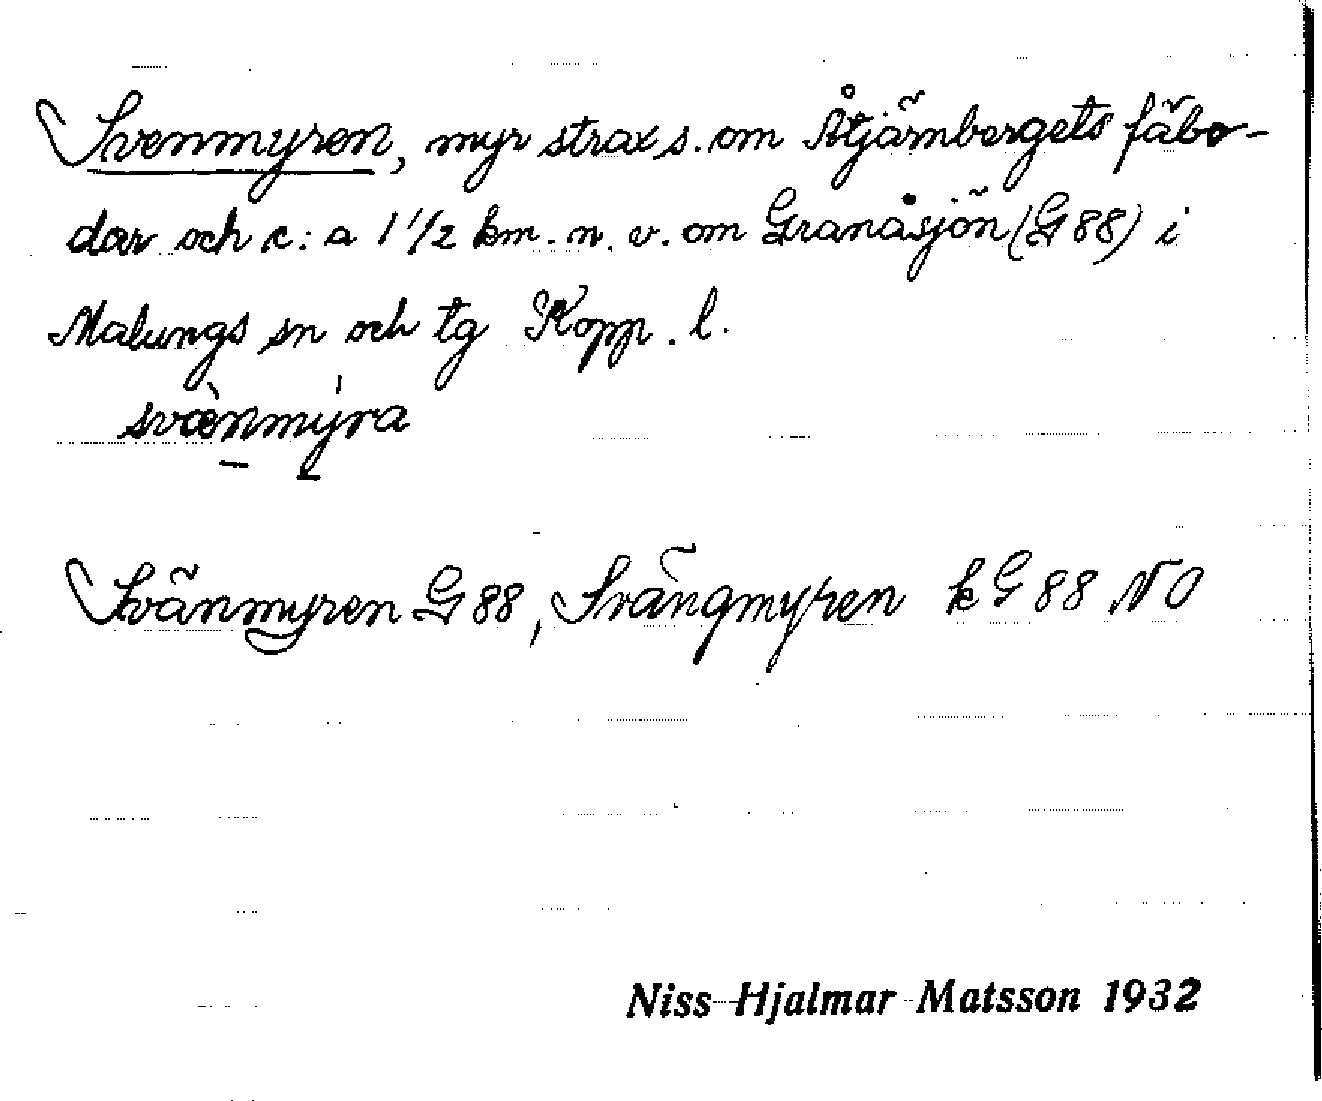 Svenmyren, myr strax s. om Åtjärnbergets fäbo-
dar och c:a 1 1/2 km. n. v. om Granåsjön (G 88) i
Malungs sn och tg Kopp. l.
svæ̀nmýra
Svänmyren G 88, Svängmyren k G 88 NO
Niss Hjalmar Matsson 1932